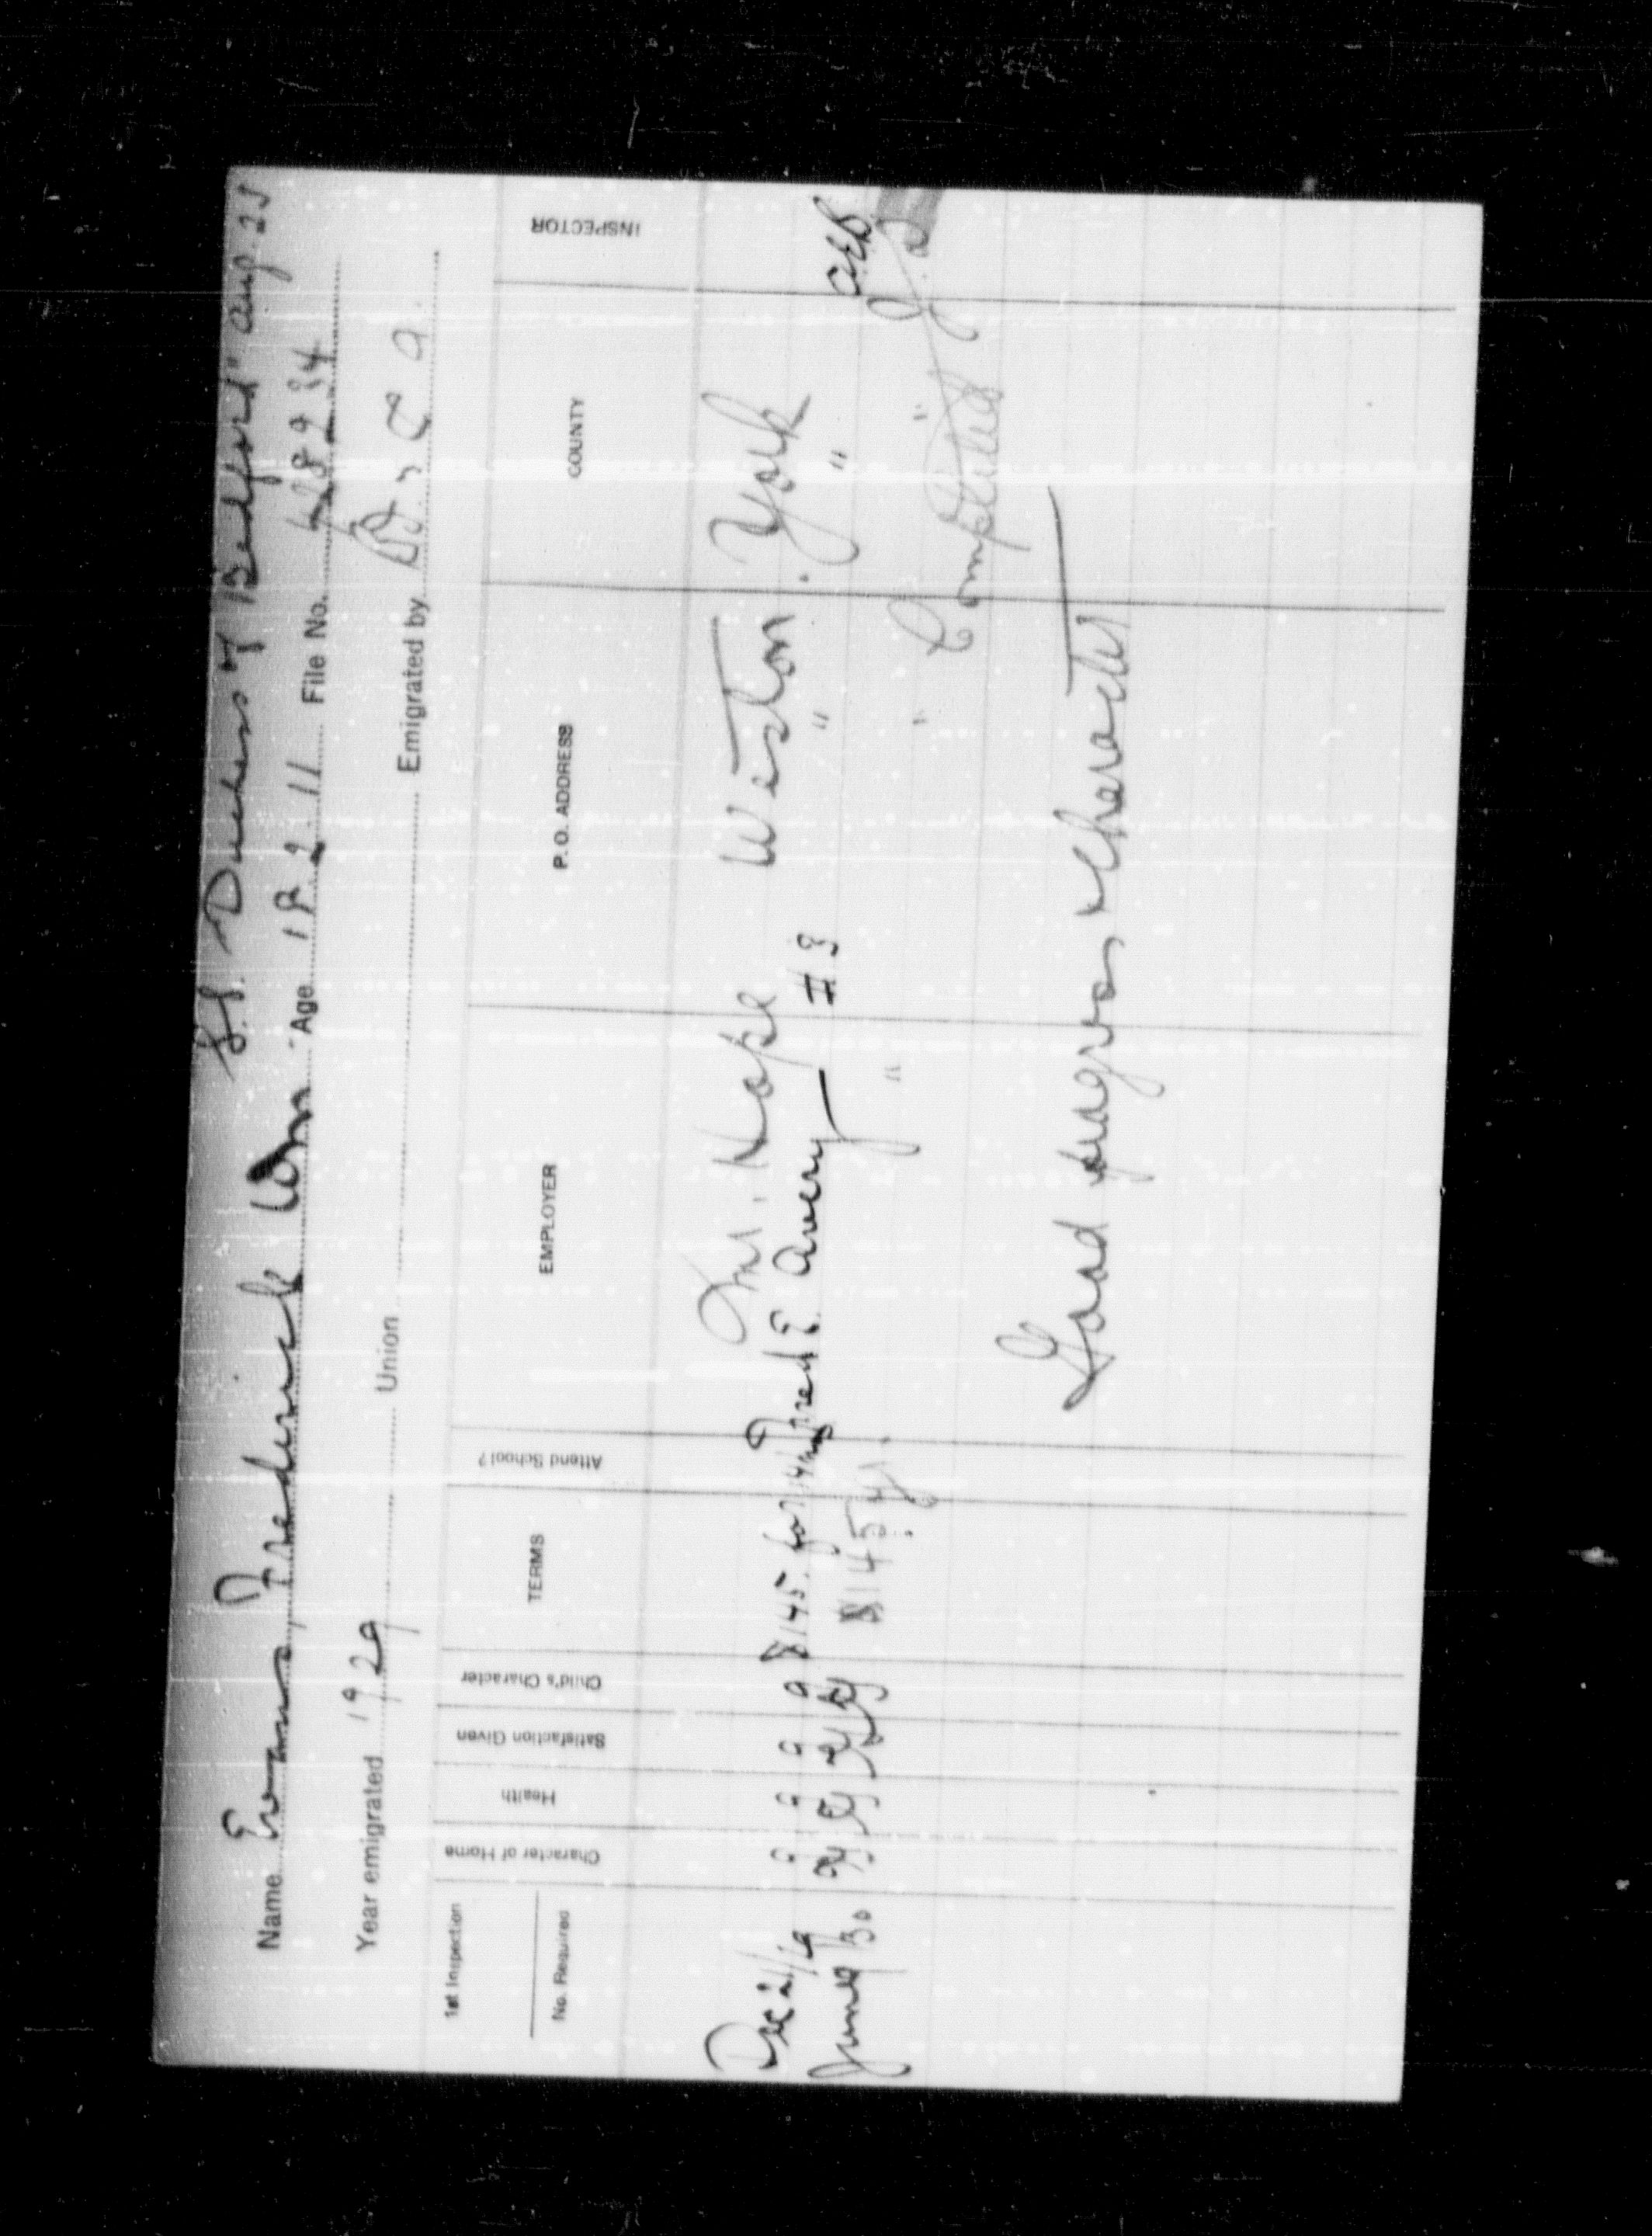 S.S. Duchess of Bedford" Aug. 23
Name Evans, Frederick Wm Age 18. 2. 11 File No.
Year emigrated 1929 Union Emigrated by
1st Inspection
No. Required
Character of Home
Health
Satisfaction Given
Child's Character
TERMS
Attend School?
EMPLOYER
P. O. ADDRESS
COUNTY
INSPECTOR
Mt. Hope Weston. York
Dec 21/29 g g g g $145. for Fred E. Avery #3 " "
June /30 g g g g $145 yr. " " "
Completed
Good progress & Character